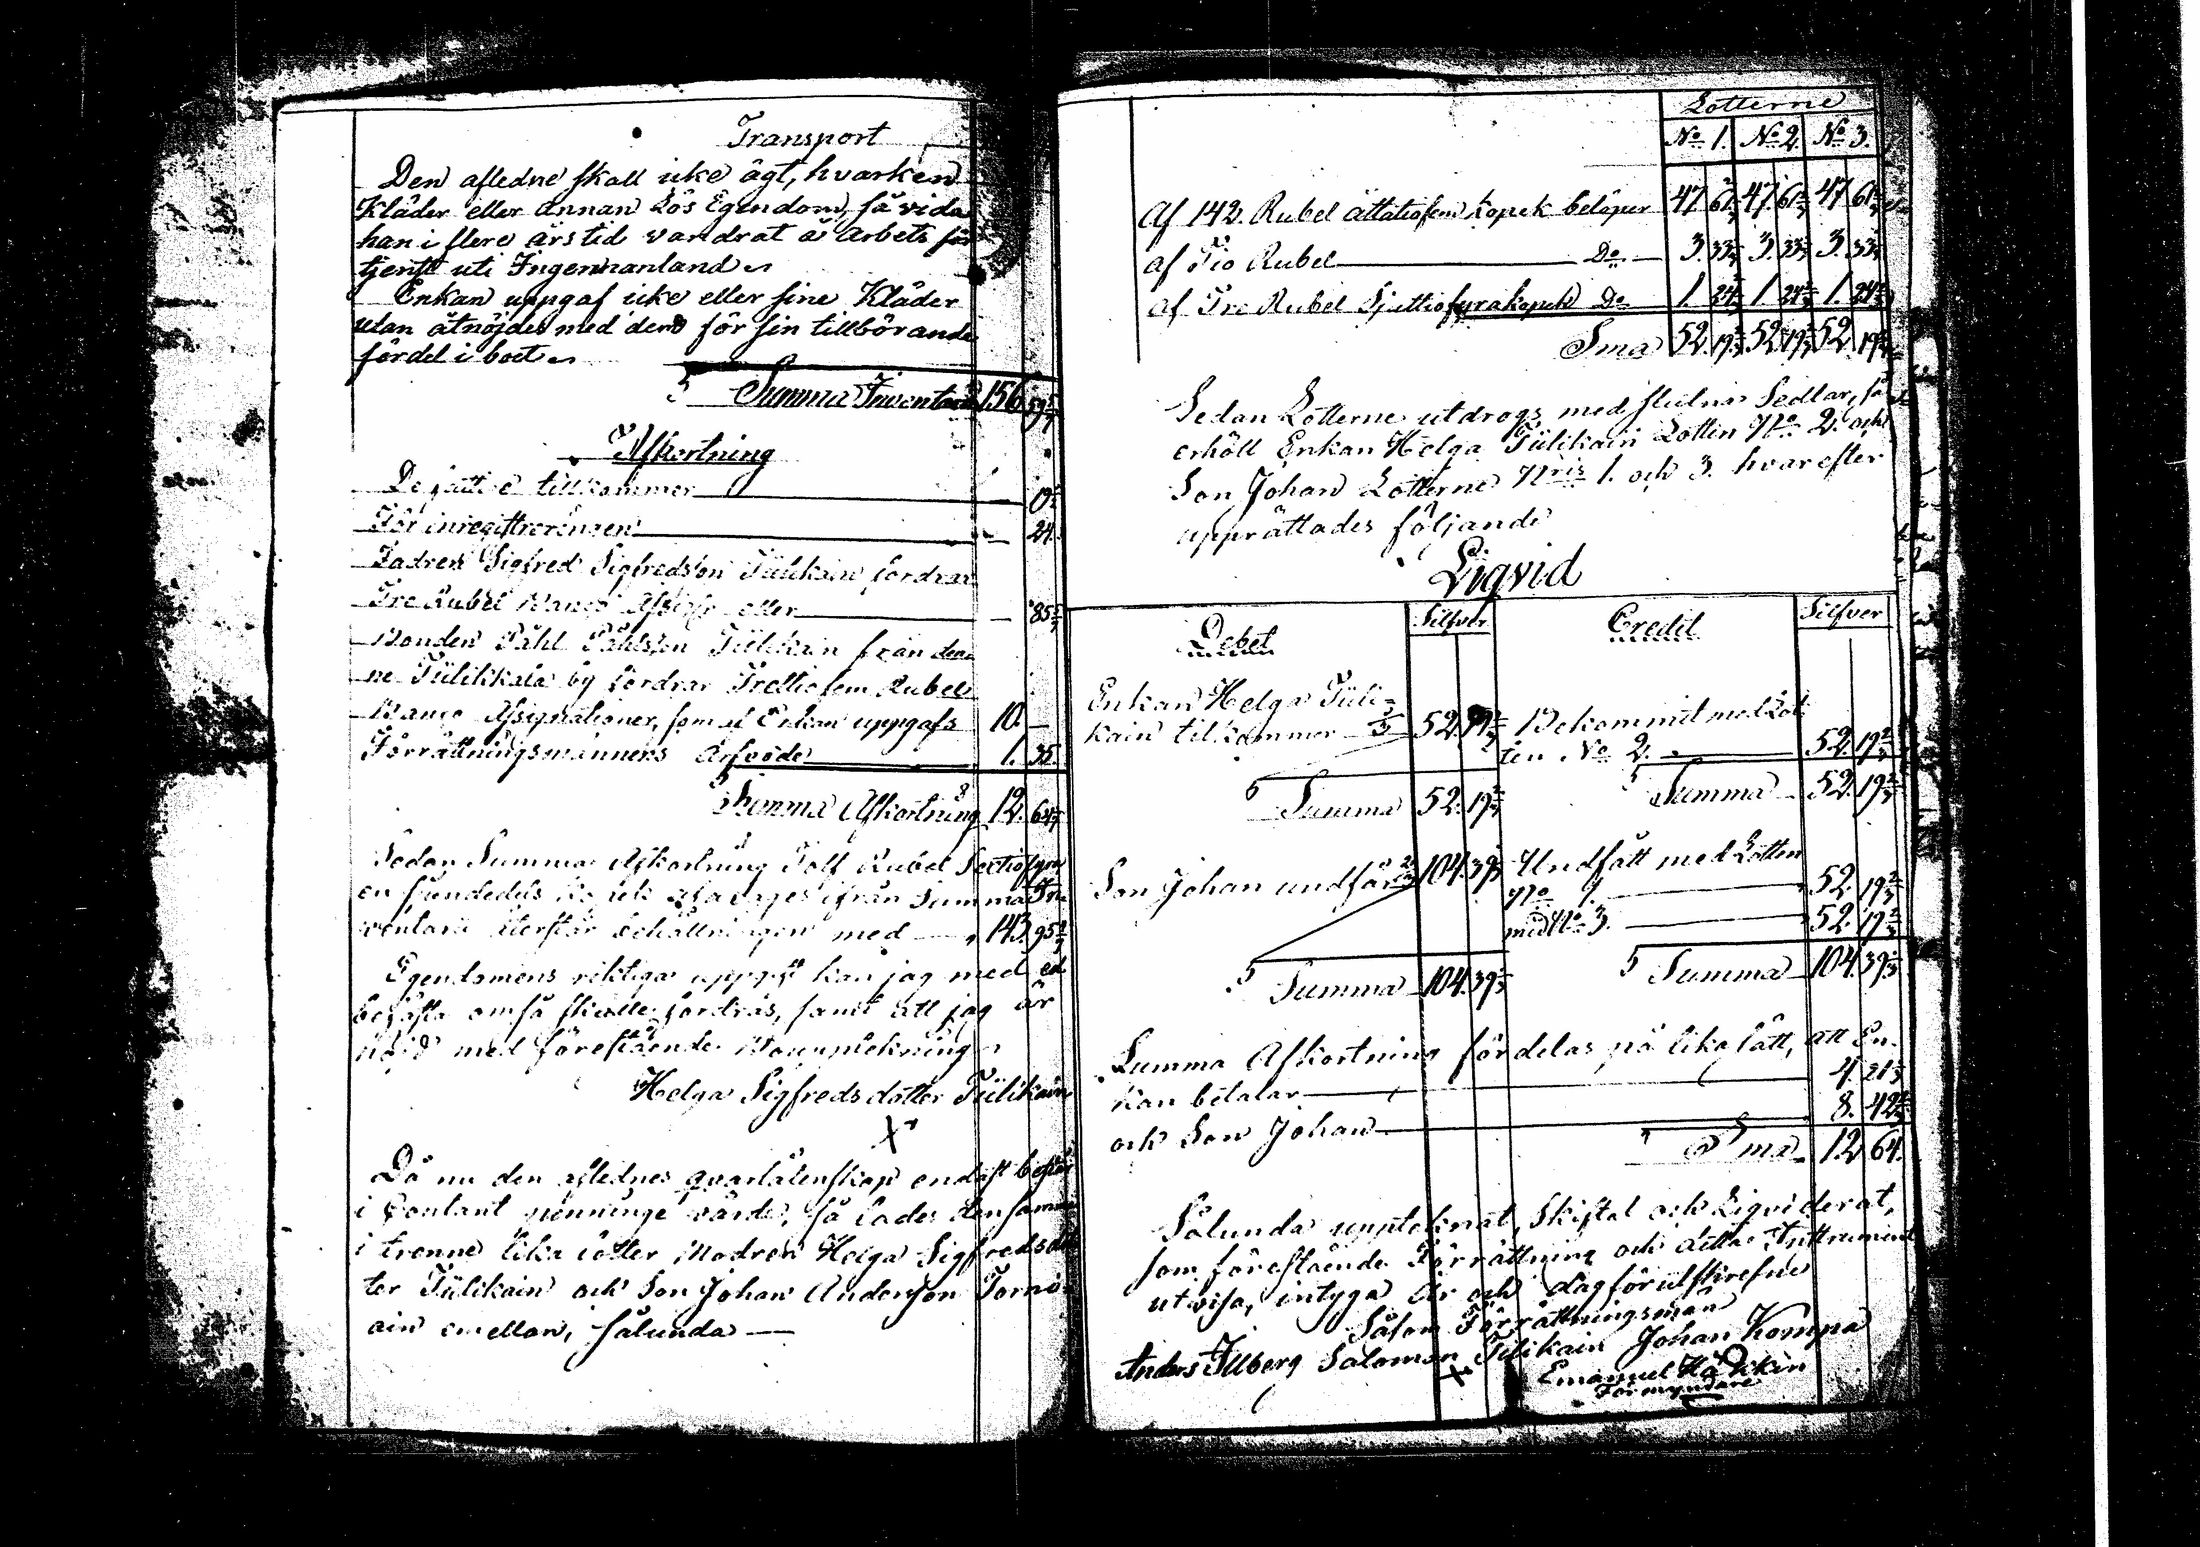 Transport
Den aflidne skall icke ägt, hvarken
Kläder eller annan Lös Egendom, så vida
han i flere års tid vandrat å Arbets för
tjenst uti Ingermanland
Enkan uppgaf icke eller sine Kläder
utan åtnöjdes med dem för sin tillbörande
fördel i boet
Summa Inventarii 156 59 5/7
Afkortning
De fattige tillkommer 19
För inregistreringen — 24.
Fadren Sigfred Sigfredsson Tülikain fordrar
Tre Rubel Banco Assign. eller — 85 5/7
Bonden Påhl Påhlsson Tülikain från den
ne Tülikkala by fordrar Trettiofem Rubel
Banco Assignationer, som af Enkan uppgafs 10. —
Förrättningsmännens Arfvode 1. 35.
Summa Afkortning 12. 64
Sedan Summa Afkortning Tolf Rubel Sextiofyra
en sjundedels Kopek afdrages ifrån Summa In-
ventarii återstår behållningen med 143. 95
Egendomens riktiga uppgift kan jag med ed
befästa om så skulle fordras, samt att jag är
nöjd med föreståendе Bouppteckning
Helga Sigfredsdotter Tülikain
X
Då nu den aflidnes qvarlåtenskap endast består
i Contant penninge värde, så lades densamma
i trenne lika lotter Modren Helga Sigfredsdot
ter Tülikain och Son Johan Andersson Torni-
ain emellan, sålunda —
Lotterne
No 1. No 2. No 3.
Af 142. Rubel åttatiofem kopek belöper 47 61 47. 61 47 61
af Tio Rubel Do 3. 33 3. 33 3. 33
af Tre Rubel Sjuttiofyra kopek Do 1. 24 1 24 1. 24
Sma 52. 19 52 19 52. 19
Sedan Lotterne utdrogs med slutna Sedlar, så
erhöll Enkan Helga Tülikain Lotten No 2. och
Son Johan Lotterne Nris 1. och 3. hvarefter
upprättades följande
Liqvid
Debet Silfver Credit Silfver
Enkan Helga Tüli-
kain tilkommer 52. 19 Bekommit med Lot-
ten No 2. 52. 19 2/3
Summa 52. 19 Summa 52. 19 2/3
Son Johan undfår 104. 39 Undfått med Lotten
No 1 52. 19 2/3
med No 3. 52. 19 2/3
Summa 104. 39 Summa 104. 39
Summa Afkortning fördelas på lika sätt, att En-
kan betalar 4. 21
och Son Johan 8. 42
Sma 12 64.
Sålunda upptecknat, Skiftat och Liqviderat,
som förestående Förrättning och detta Instrument
utvisa, intyga År och dag förutskrefne
Såsom Förrättningsmän
Anders Illberg Salomon Tülikain Johan Kompa
X
Emanuel
Förmyndare